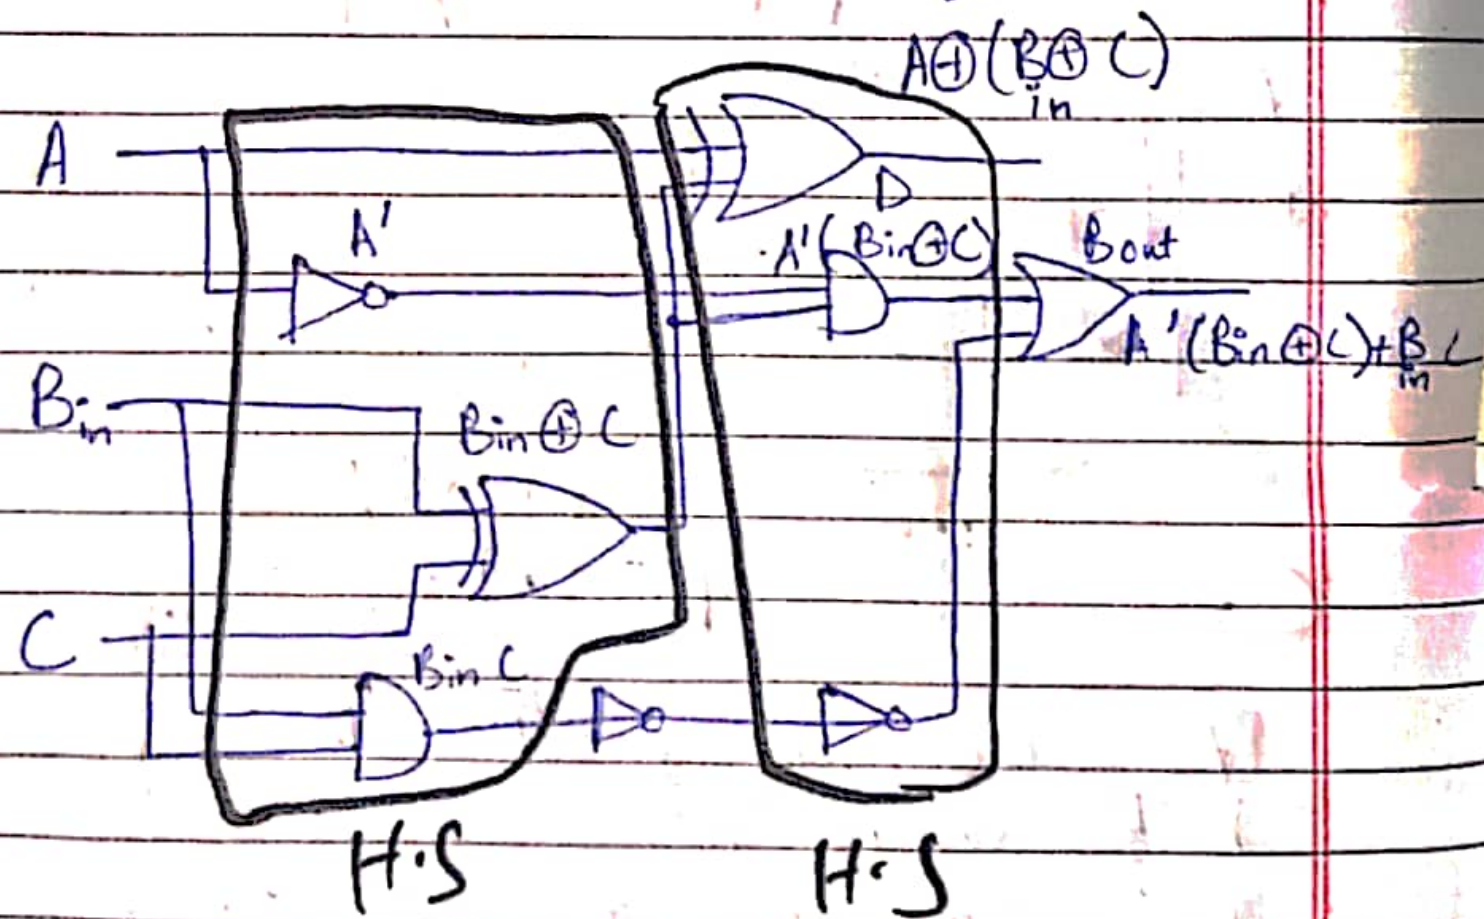 A⊕(Bin⊕C)
A
D
A'
A'(Bin⊕C)
Bout
A'(Bin⊕C)+Bin C
Bin
Bin⊕C
C
Bin C
H.S
H.S